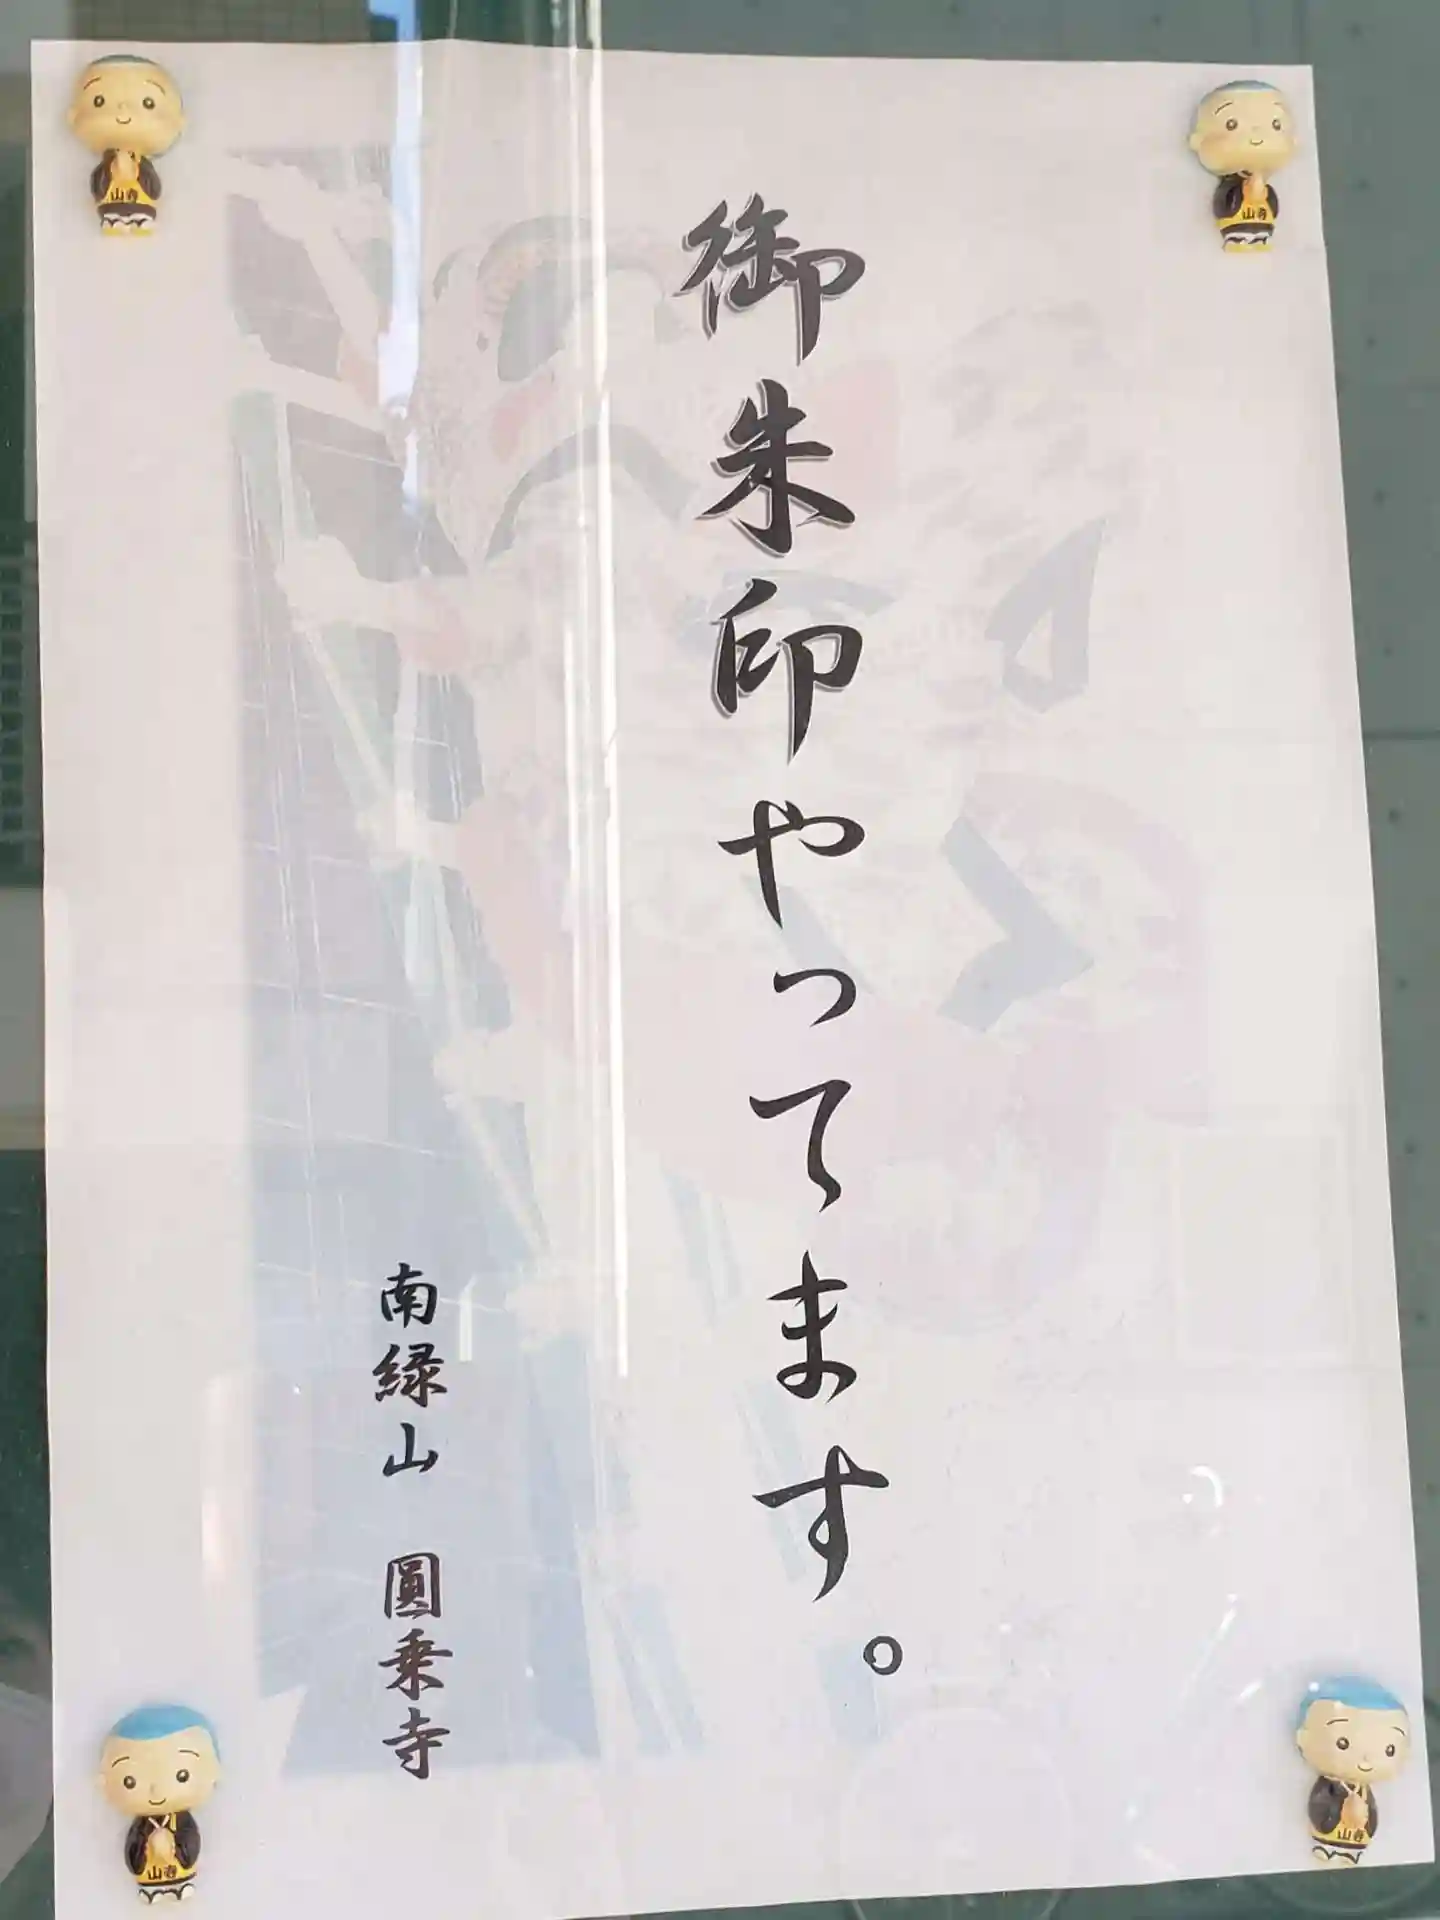 御朱印やってます。
南緑山 圓乗寺
山寺
山寺
山寺
山寺